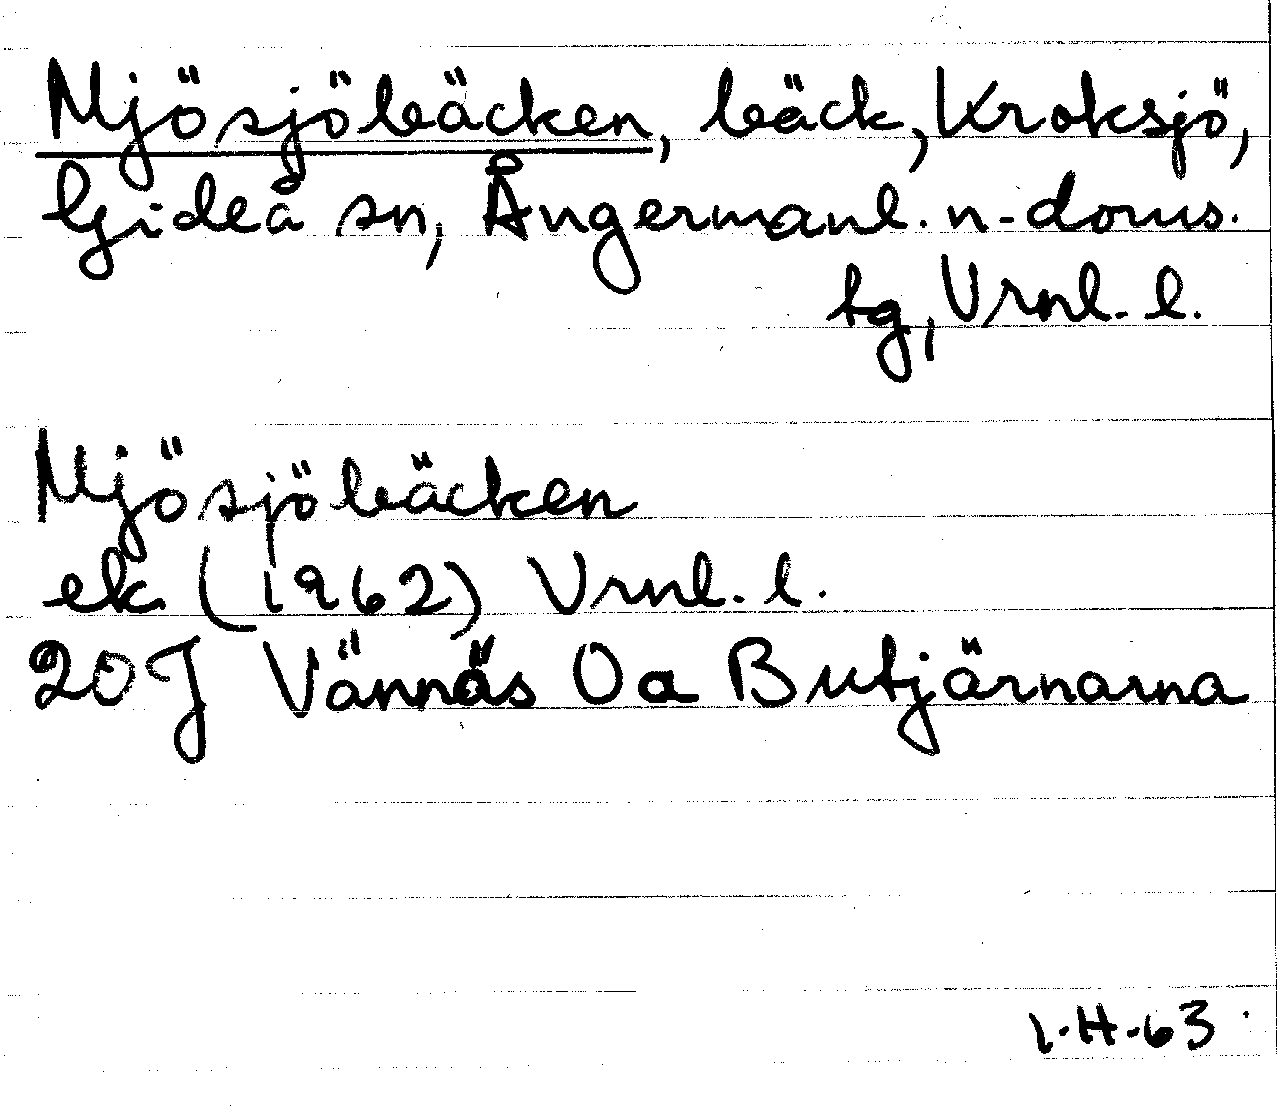 Mjösjöbäcken, bäck, Kroksjö,
Gideå sn, Ångermanl. n-doms.
tg, Vrnl. l.
Mjösjöbäcken
ek (1962) Vrnl. l.
20J Vännäs Oa Butjärnarna
1·H·63